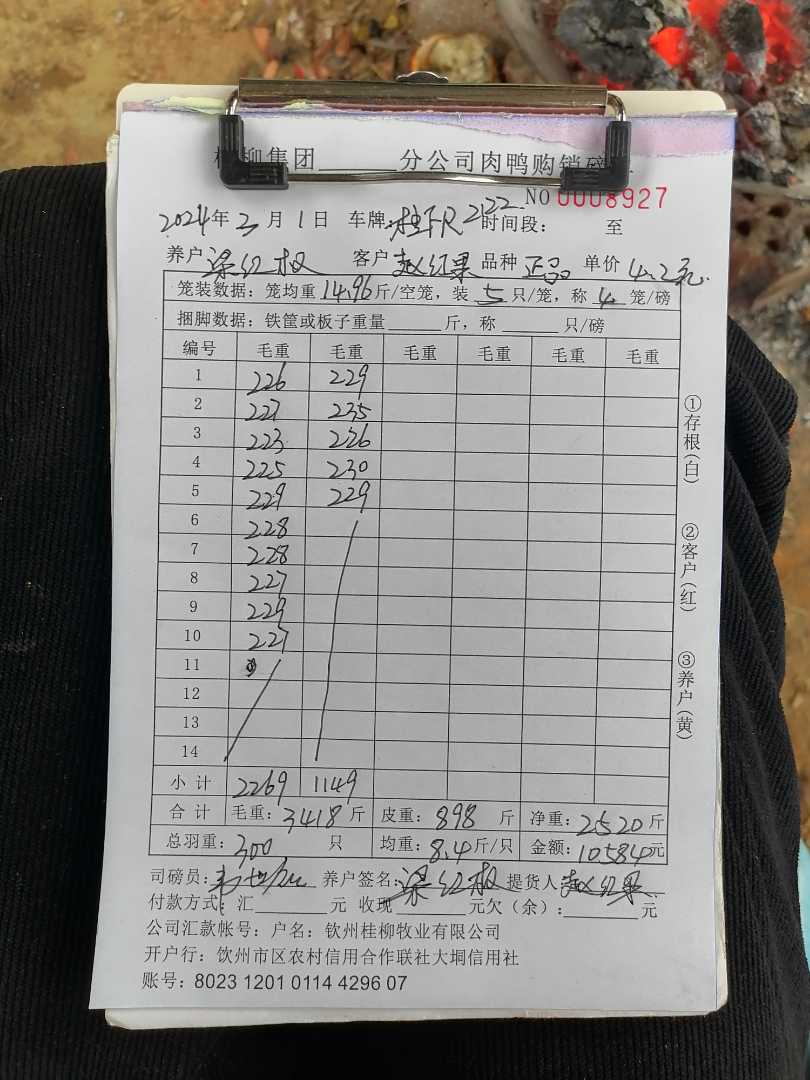 柳集团______分公司肉鸭购销磅
NO 0008927
2024年3月1日 车牌: 2122 时间段: 至
养户 梁红权 客户 赵红果 品种 正品 单价 4.2元
笼装数据: 笼均重14.96斤/空笼, 装 5 只/笼, 称 4 笼/磅
捆脚数据: 铁筐或板子重量______斤, 称______只/磅
编号 毛重 毛重 毛重 毛重 毛重 毛重
1 226 229
2 227 235
3 223 226
4 225 230
5 229 229
6 228
7 228
8 227
9 229
10 227
11
12
13
14
小计 2269 1149
合计 毛重: 3418 斤 皮重: 898 斤 净重: 2520 斤
总羽重: 300 只 均重: 8.4斤/只 金额: 10584元
司磅员: 养户签名: 梁红权 提货人 赵红果
付款方式: 汇______元 收现______元欠(余): ______元
公司汇款帐号: 户名: 钦州桂柳牧业有限公司
开户行: 饮州市区农村信用合作联社大垌信用社
账号: 8023 1201 0114 4296 07
①存根(白)
②客户(红)
③养户(黄)